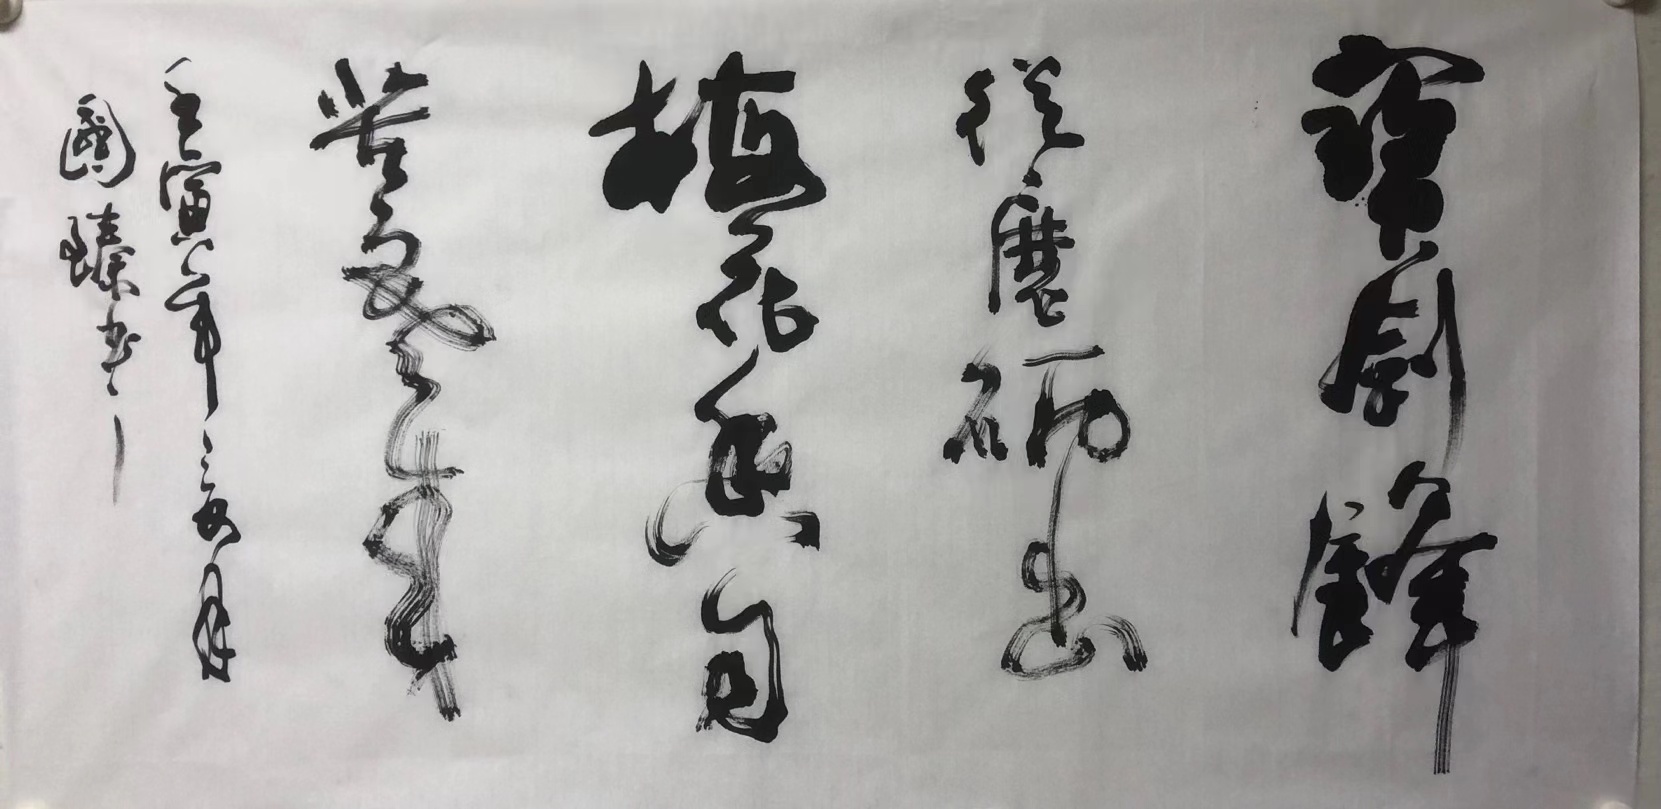 寶劍鋒
從磨礪出
梅花香自
苦寒來
壬寅年夏月
國臻書